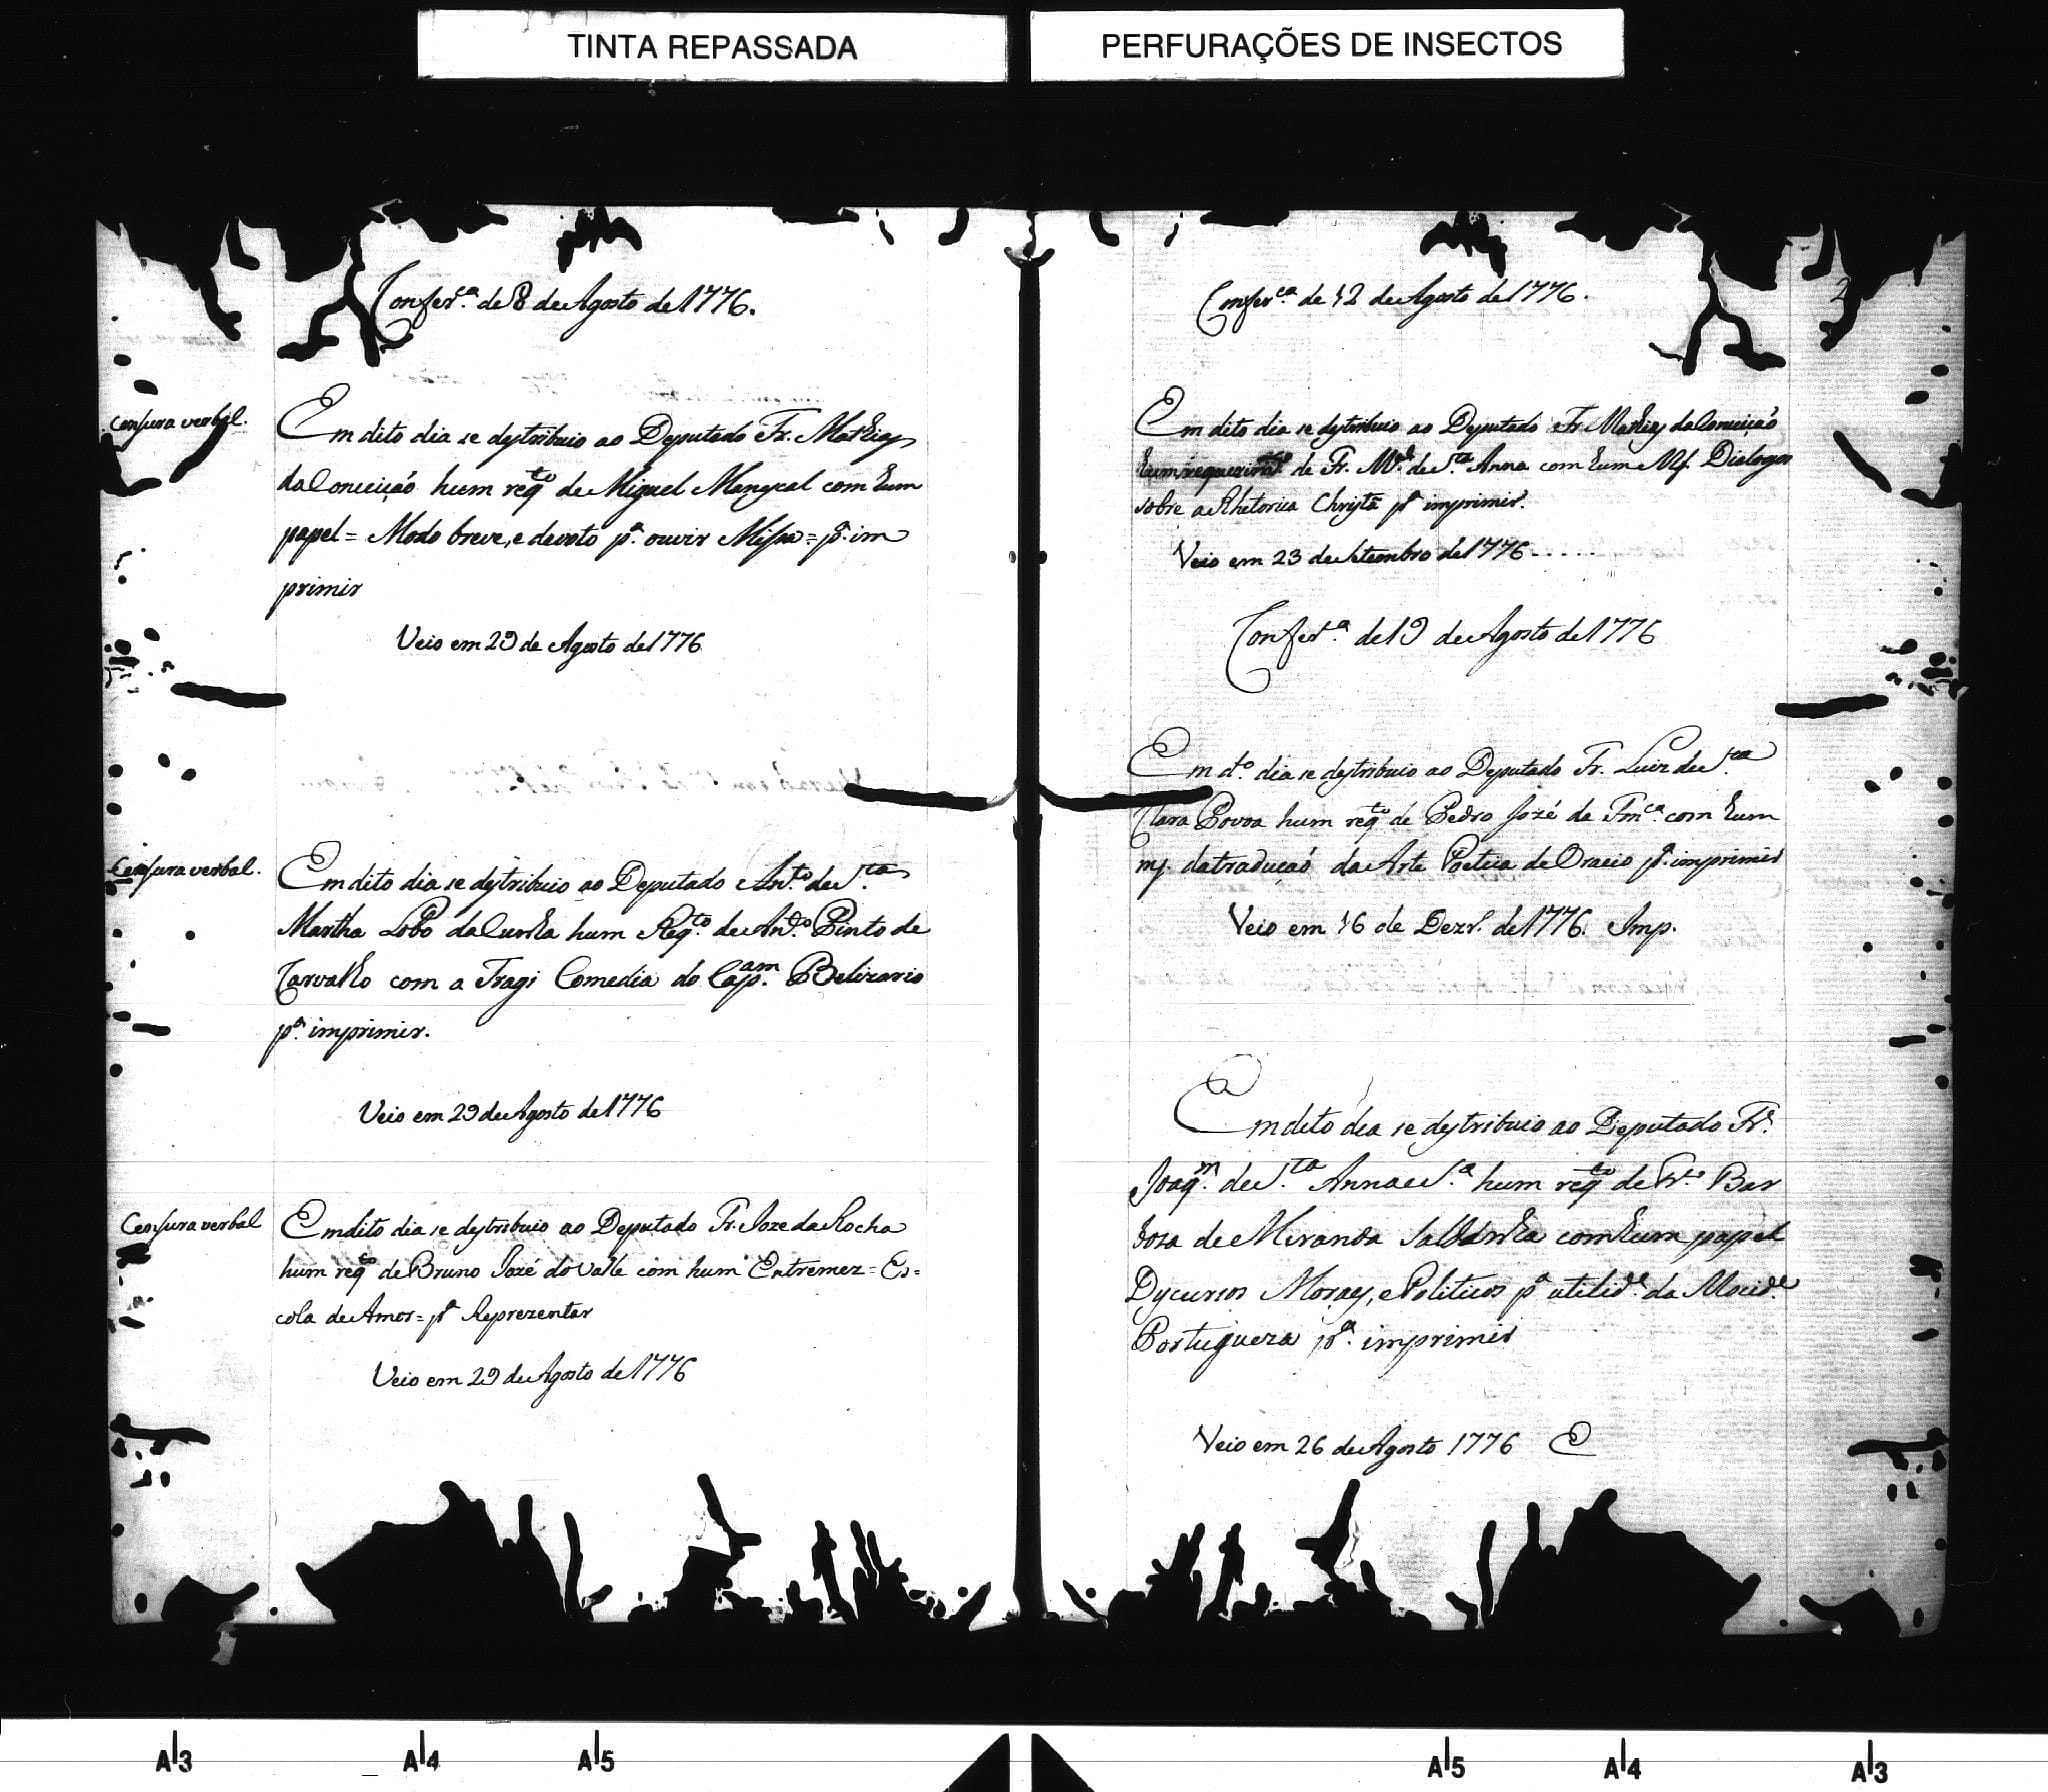 TINTA REPASSADA
PERFURAÇÕES DE INSECTOS
Confer.ca de 8 de Agosto de 1776.
Censura verbal.
Em dito dia se destribuio ao Deputado Fr. Mathias
da Conceição hum reqto de Miguel Manescal com hum
papel = Modo breve, e devoto pa. ouvir Missa = pa. im
primir
Veio em 29 de Agosto de 1776
Censura verbal.
Em dito dia se destribuio ao Deputado Anto. de S.ta
Martha Lobo da Cunha hum Reqto. de Anto. Pinto de
Carvalho com a Tragi Comedia do Capam. Belizario
pa. imprimir.
Veio em 29 de Agosto de 1776
Censura verbal
Em dito dia se destribuio ao Deputado Fr. Joze da Rocha
hum reqto de Bruno José do Valle com hum Entremez = Es=
cola de Amor = pa Reprezentar
Veio em 29 de Agosto de 1776
2
Confer.ca de 12 de Agosto de 1776.
Em dito dia se destribuio ao Deputado Fr. Mathias da Conceição
hum requerimto de Fr. Mel. de S.ta Anna com hum Ms. Dialogos
sobre a Rhetorica Christã pa imprimir.
Veio em 23 de Setembro de 1776 . . . . .
Confer.a de 19 de Agosto de 1776
Em dto. dia se destribuio ao Deputado Fr. Luiz de S.ta
Clara Povoa hum reqto de Pedro José da Fonca. com hum
ms. da traducaõ da Arte Poetica de Oracio pa. imprimir
Veio em 16 de Dezr. de 1776. Imp.
Em dito dia se destribuio ao Deputado Fr.
Joaqm. de S.ta Anna e S.a hum reqto de Bar
bosa de Miranda Saldanha com hum papel
Dycursos Moraes, e Politicos pa utilide. da Mocide.
Portugueza pa. imprimir
Veio em 26 de Agosto 1776 E
A3 A4 A5 A5 A4 A3